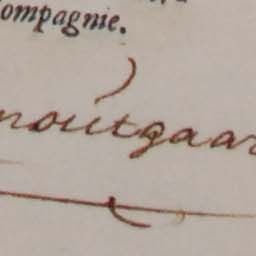 ompagnie.
noutgaar